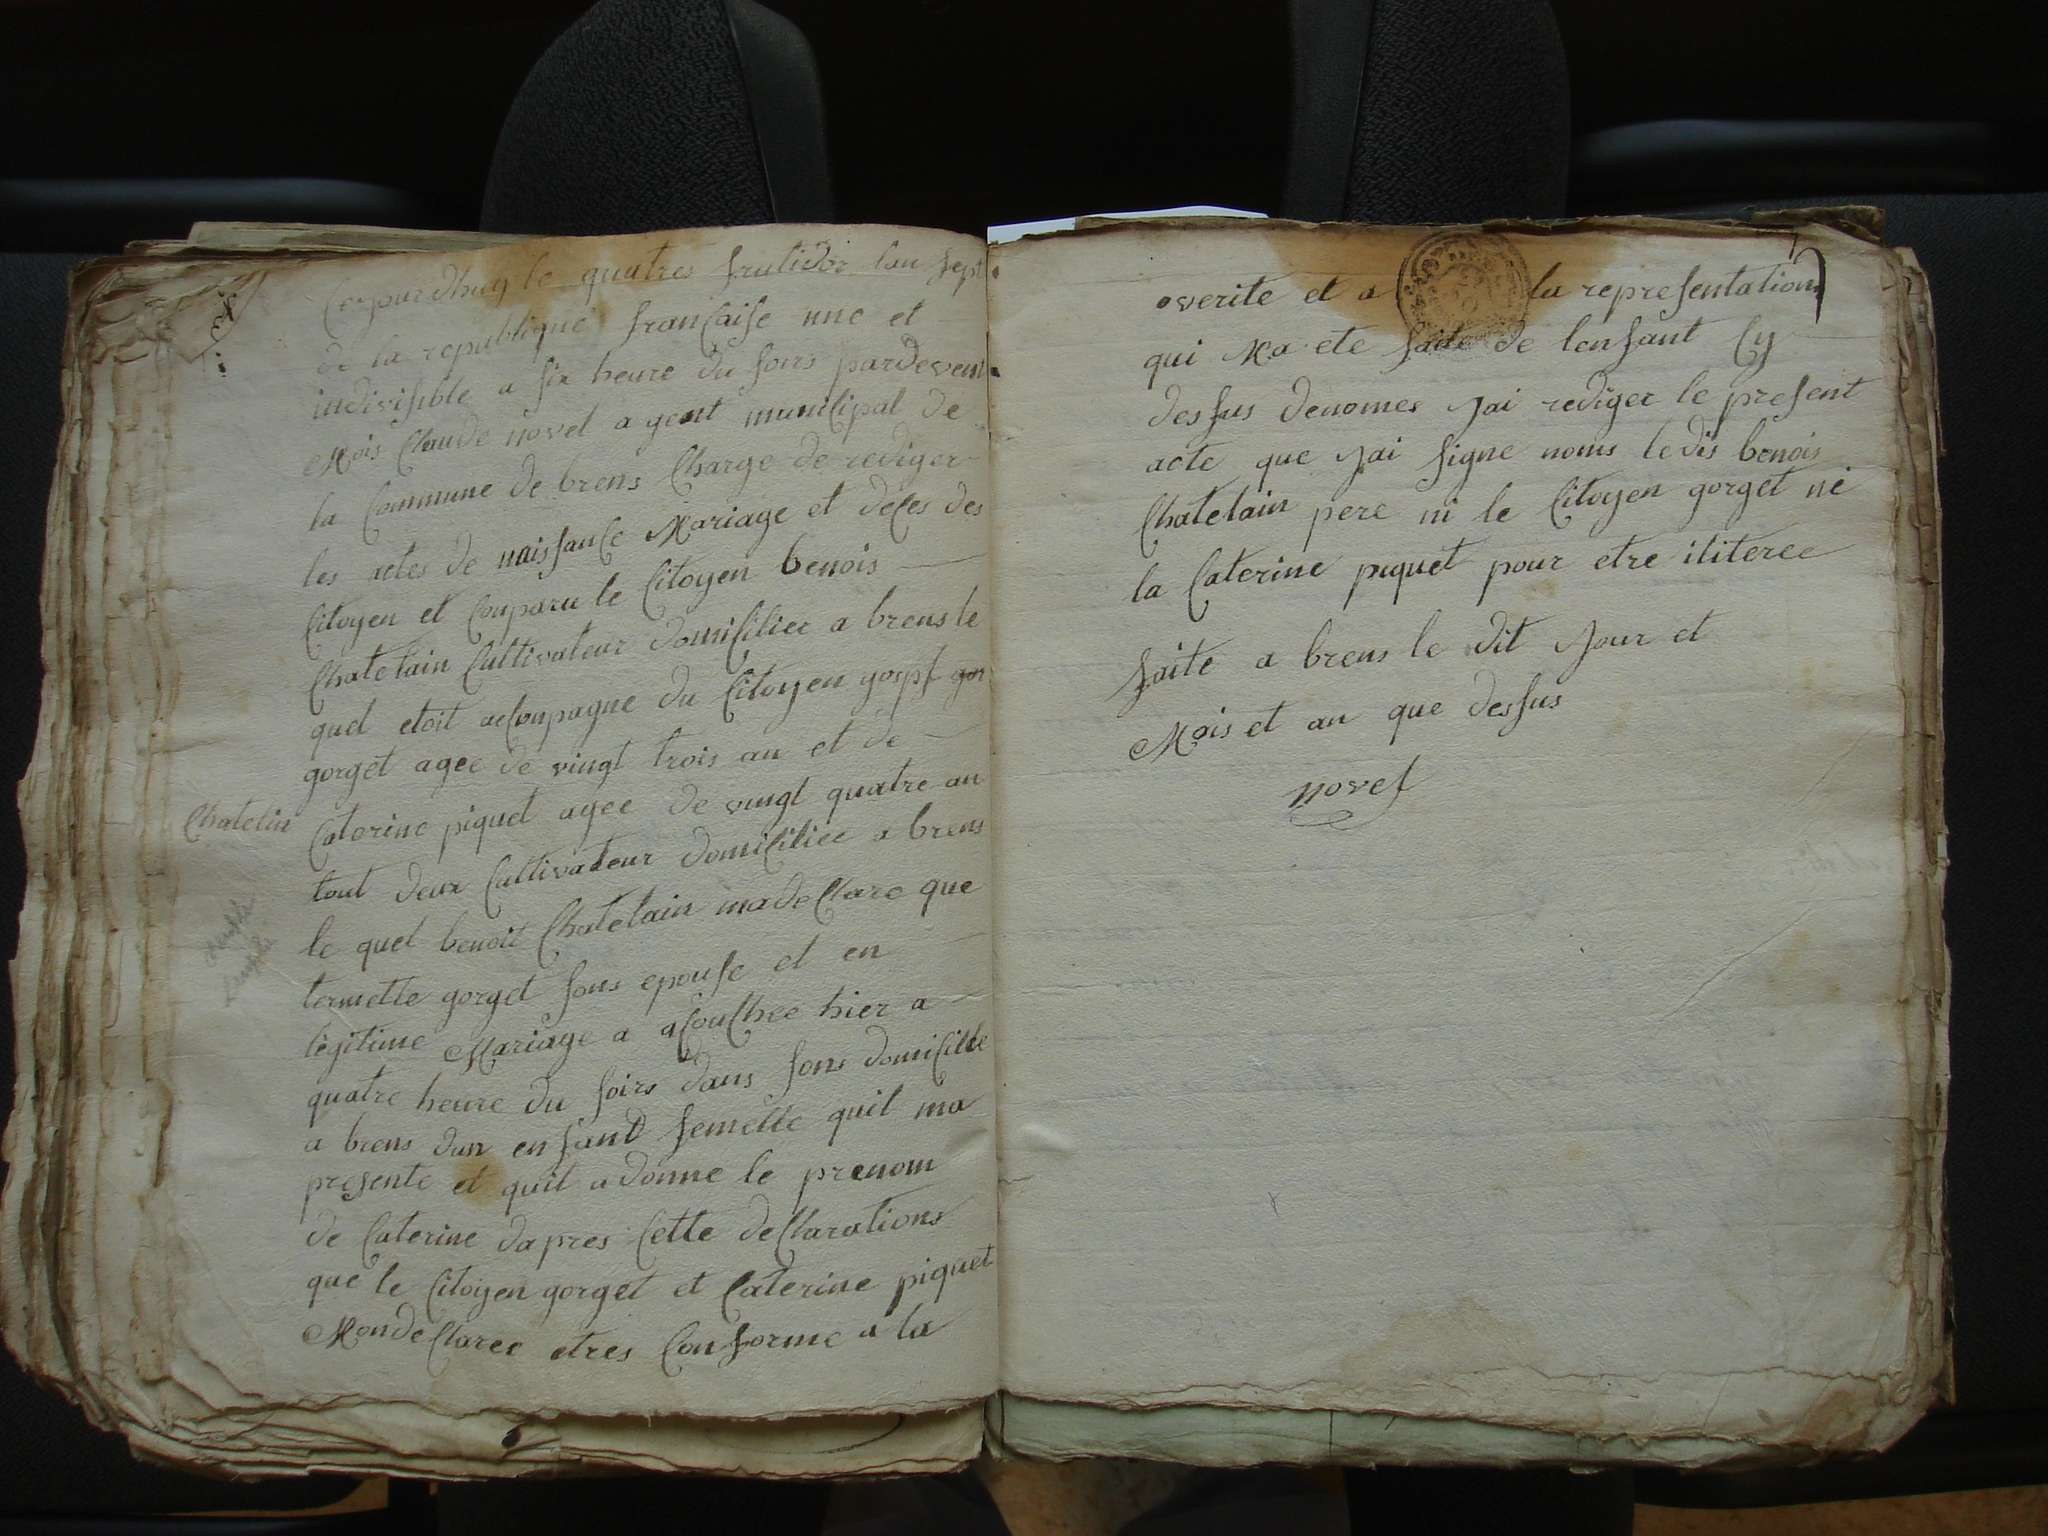 Cejourdhuy le quatres frutidor lan sept
de la republique francaise une et
indivisible a six heure du soirs pardevent
Mois Claude novel agent municipal de
la Commune de brens Charge de rediger
les actes de naissance Mariage et deces des
Citoyen et Conparu le Citoyen benois
Chatelain Cultivateur domicilier a brens le
quel etoit acconpagne du Citoyen
gorget agee de vingt trois an et de
Chatelin
Caterine piquet agee de vingt quatre an
tout deux Cultivateur domiciliee a brens
le quel benoit Chatelain ma declare que
termette gorget sons epouse et en
legitime Mariage a acouchee hier a
quatre heure du soirs dans sons domicille
a brens dun enfant femelle quil ma
presente et quil a donne le prenom
de Caterine dapres Cette declarations
que le Citoyen gorget et Caterine piquet
Mon declaree etres Conforme a la
verite et a la representations
qui Ma ete faite de lenfant Cy
dessus denomes Jai rediger le present
acte que Jai signe nons le dis benois
Chatelain pere ni le Citoyen gorget ni
la Caterine piquet pour etre iliteree
faite a brens le dit Jour et
Mois et an que dessus
novel